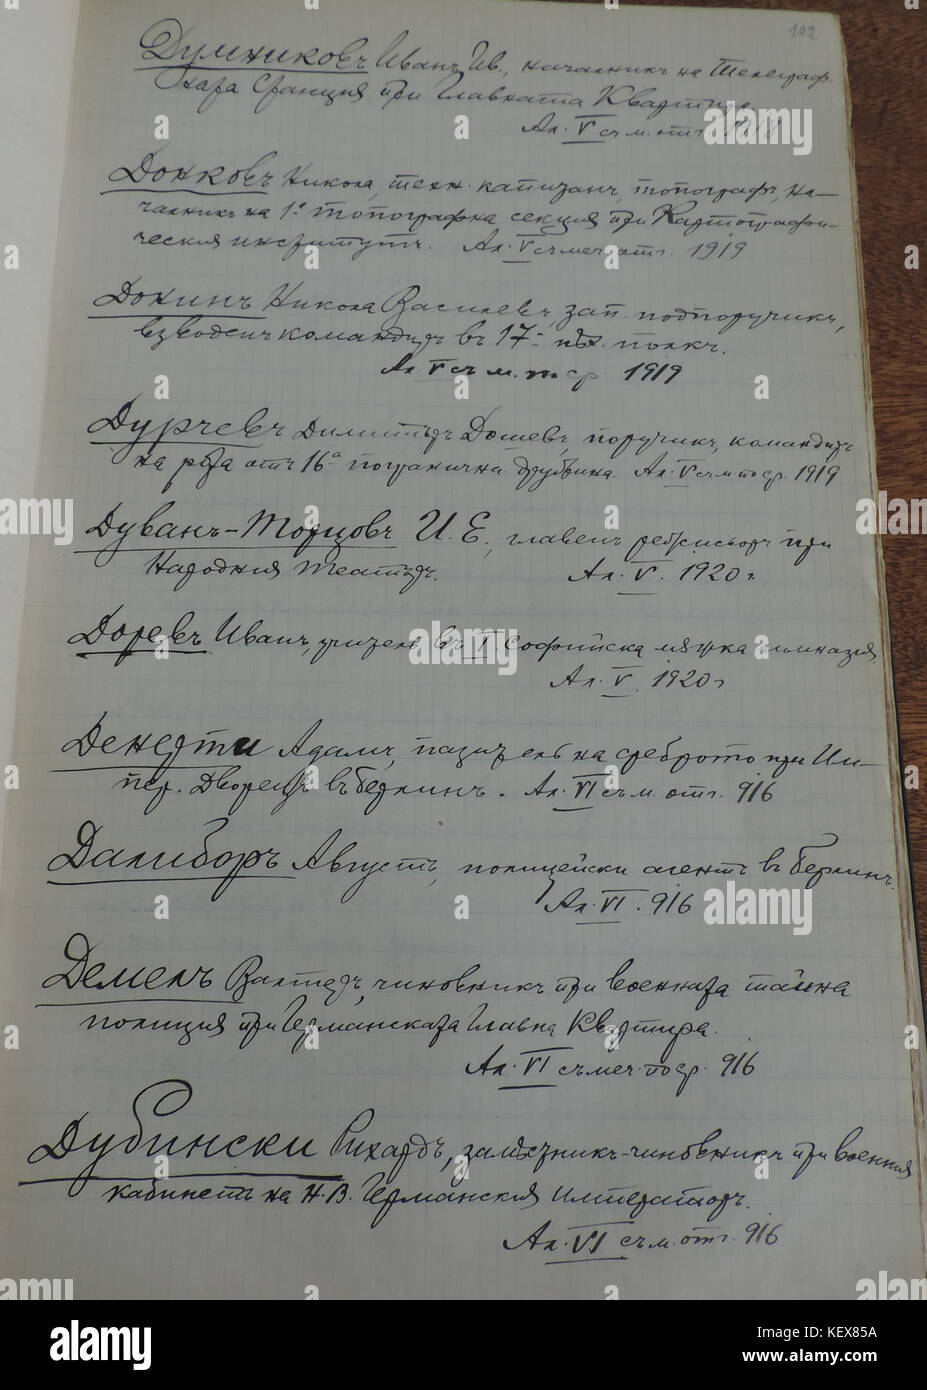 102
Думниковъ Иванъ Ив., началникъ на Телеграф
ната Станция при Главната Квартира
Ал. V съ м. от. 1918
Донковъ Никола, техн. капитанъ, топографъ, на-
чалникъ на 1а топографна секция при Картографи-
ческия институтъ. Ал. V съ меч. от. 1919
Докинъ Никола Василевъ, зап. подпоручикъ,
взводенъ командиръ въ 17- пѣх. полкъ.
Ал V съ м. по ср. 1919
Дурчевъ Димитъръ Дошевъ, поручикъ, командиръ
на рота отъ 16а погранична дружина. Ал. V съ м. по ср. 1919
Дуванъ-Торцовъ И. Е., главенъ режисьоръ при
Народния Театъръ. Ал. V. 1920 г.
Доревъ Иванъ, учител въ I. Софийска мѫжка гимназия
Ал. V. 1920 г
Адамъ, пазителъ на среброто при Им-
пер. Дворецъ въ Берлинъ. Ал. VI съ м. от. 916
Далиборъ Августъ, полицейски агентъ въ Берлинъ.
Ал. VI. 916
Демелъ Валтеръ, чиновникъ при военната тайна
полиция при Германската Главна Квартира.
Ал. VI съ меч. по ср. 916
Дубински Рихардъ, чиновникъ при военния
кабинетъ на Н. В. Германския Императоръ.
Ал. VI съ м. от. 916
alamy
alamy stock photo
KEX85A
www.alamy.com